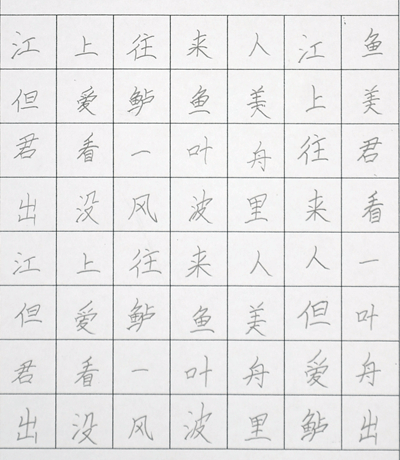 江上往来人江鱼
但爱鲈鱼美上美
君看一叶舟往君
出没风波里来看
江上往来人人一
但爱鲈鱼美但叶
君看一叶舟爱舟
出没风波里鲈出